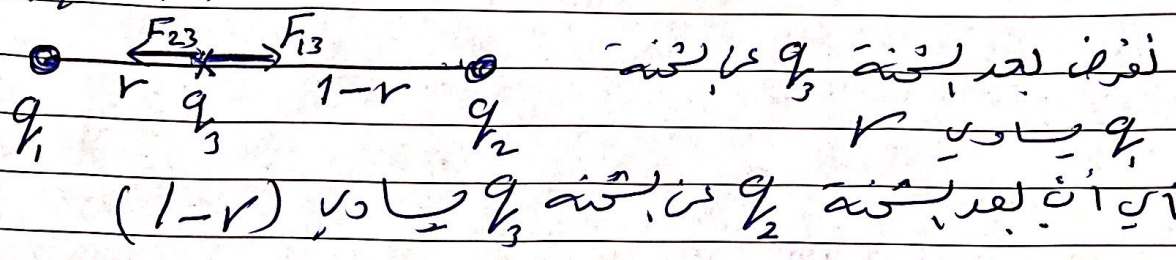 F₂₃ F₁₃
r 1-r
q₁ q₃ q₂
نفرض بعد الشحنة q₃ عن الشحنة
q₁ يساوي r
اي أن بعد الشحنة q₂ عن الشحنة q₃ يساوي (1-r)